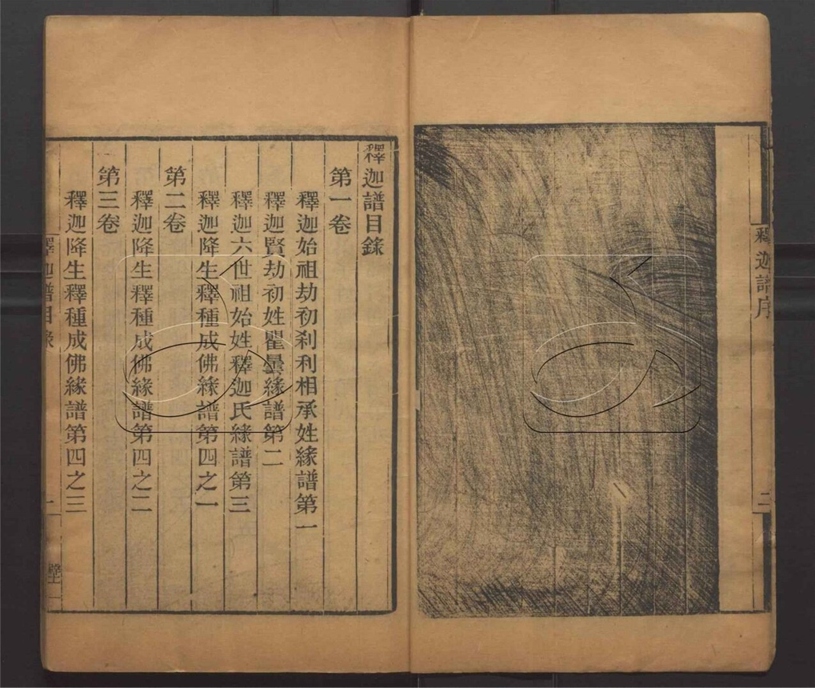 釋迦譜序
二
釋迦譜目錄
第一卷
釋迦始祖劫初剎利相承姓緣譜第一
釋迦賢劫初姓瞿曇緣譜第二
釋迦六世祖始姓釋迦氏緣譜第三
釋迦降生釋種成佛緣譜第四之一
第二卷
釋迦降生釋種成佛緣譜第四之二
第三卷
釋迦降生釋種成佛緣譜第四之三
釋迦譜目錄
一